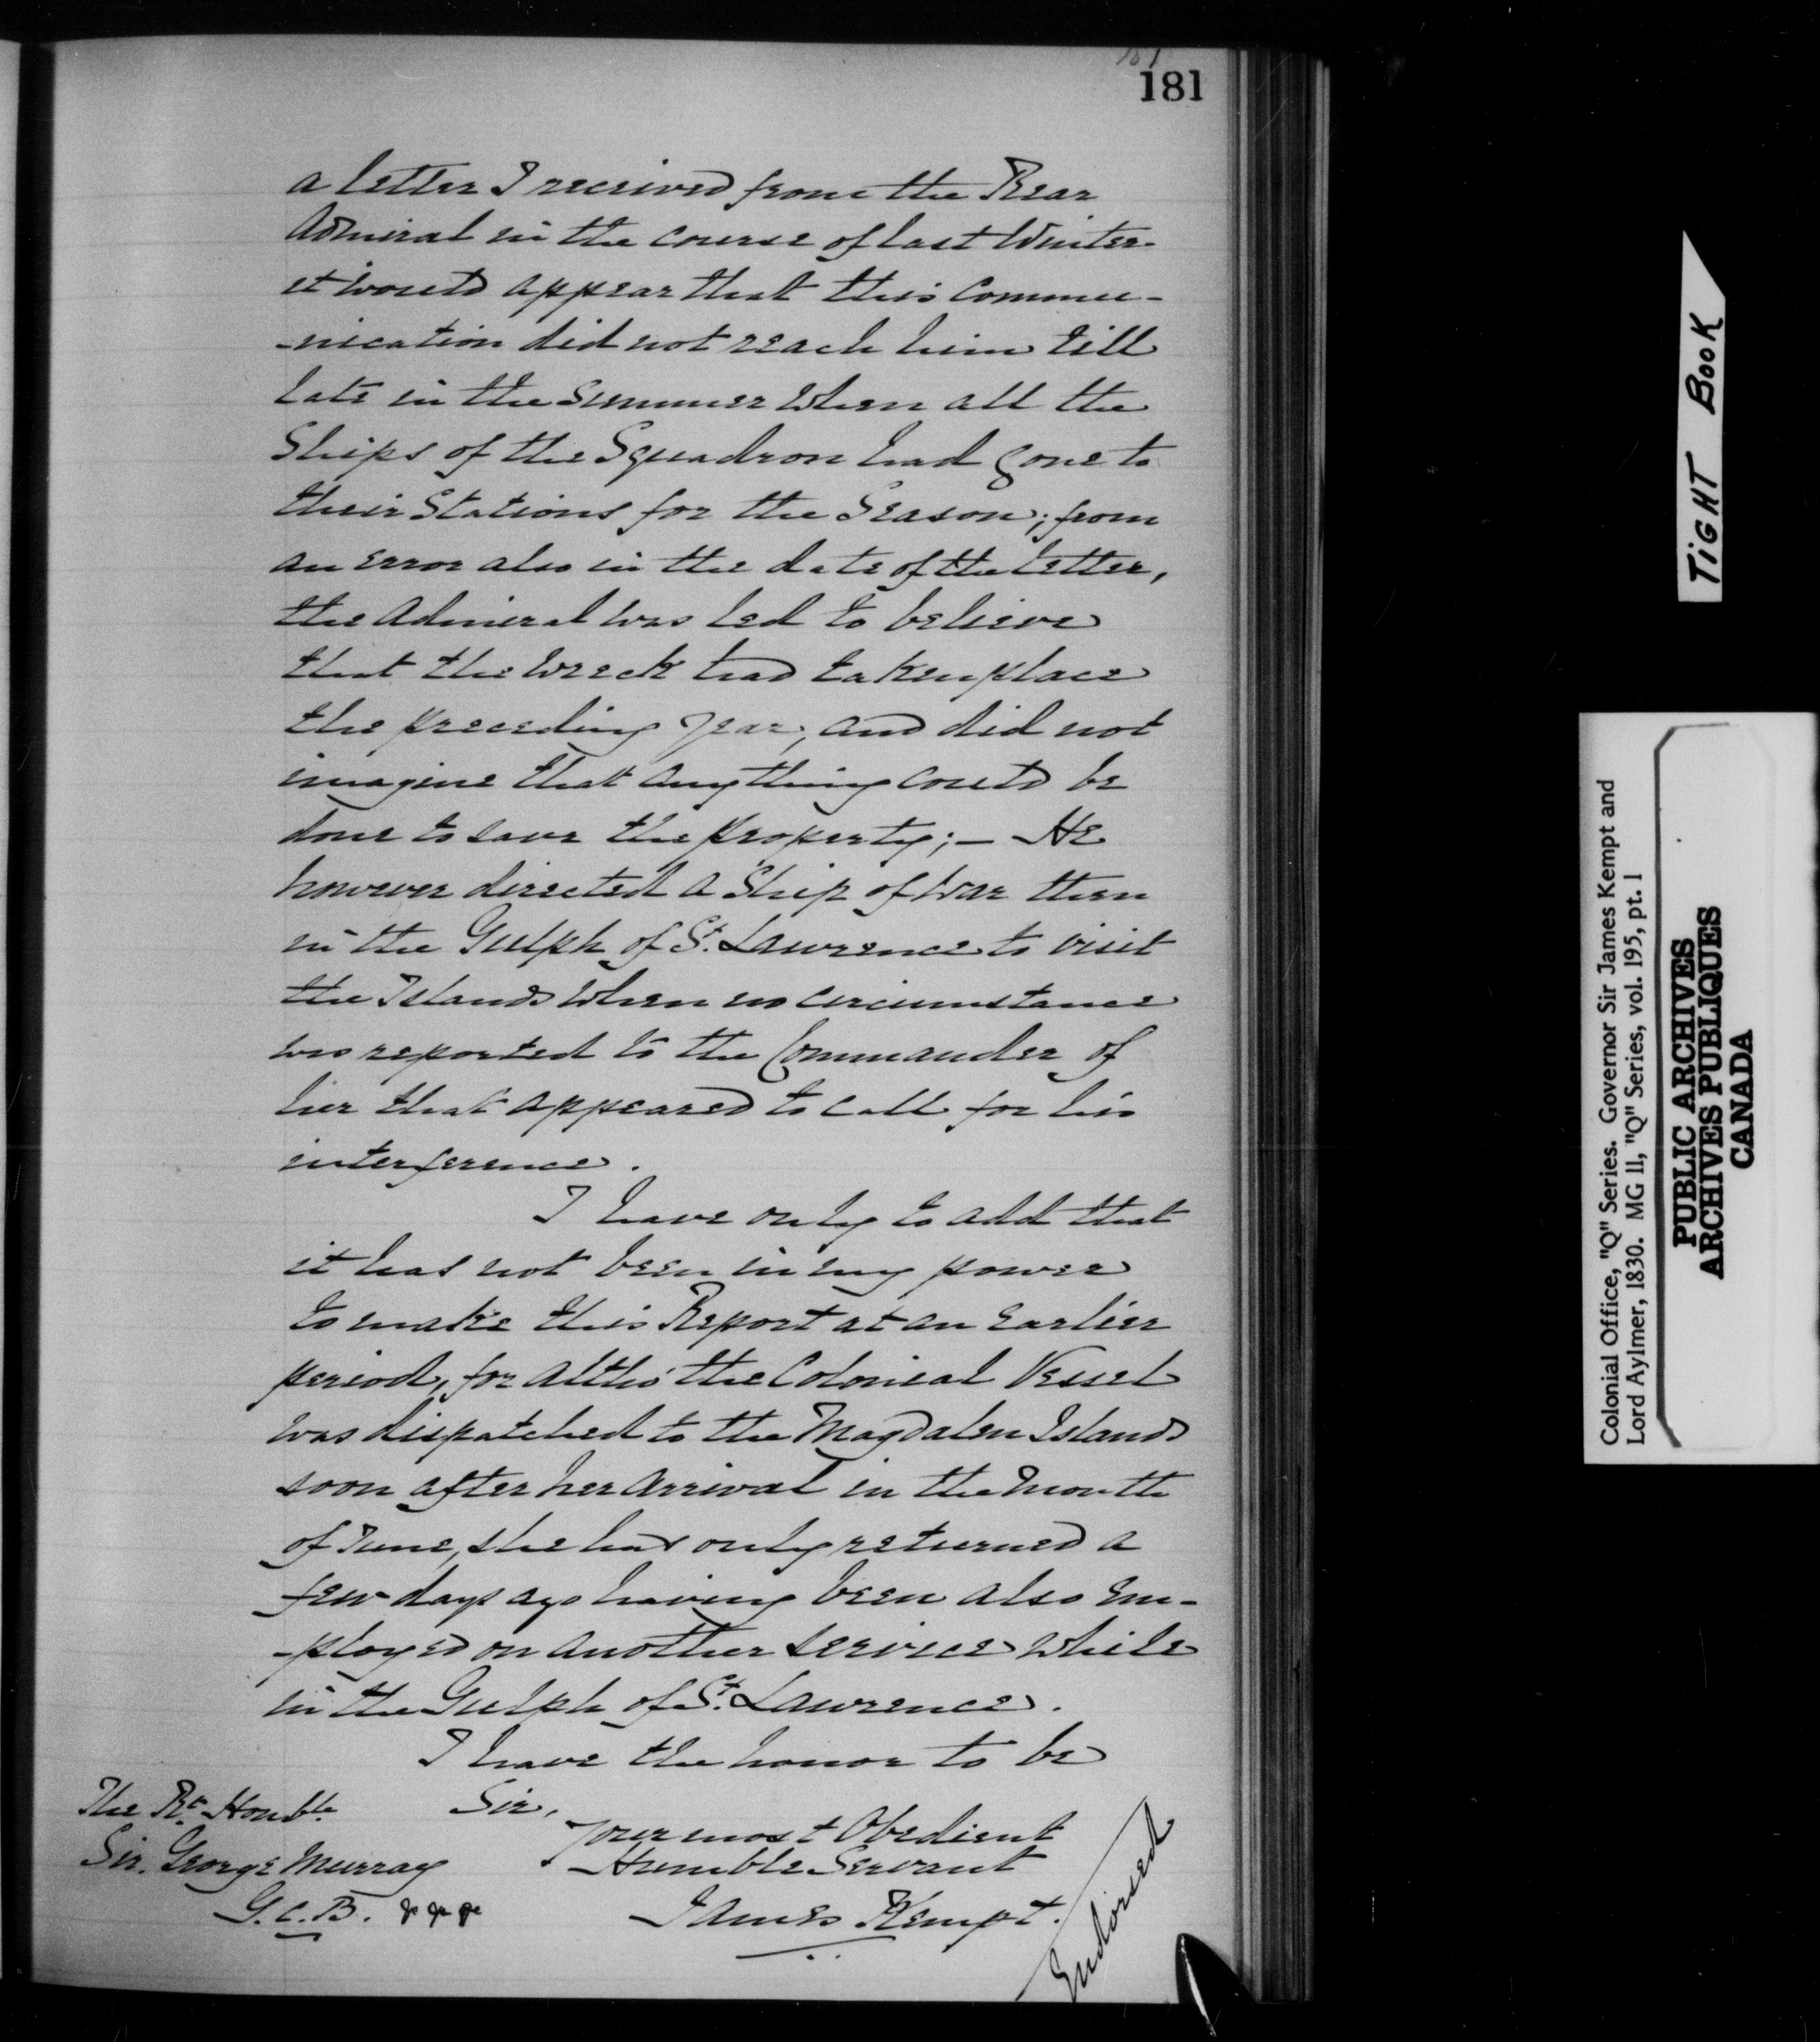 181
181
a letter I received from the Rear
Admiral in the course of last Winter
it would appear that this Commu-
-nication did not reach him till
late in the Summer when all the
Ships of the Squadron had gone to
their Stations for the Season; from
an error also in the date of the letter,
the Admiral was led to believe
that the wreck had taken place
the preceding year, and did not
imagine that anything could be
done to save the property; — He
however directed a Ship of War then
in the Gulph of St. Lawrence to visit
the Islands when no circumstance
was reported to the Commander of
her that appeared to call for his
interference.
I have only to add that
it has not been in my power
to make this Report at an earlier
period, for altho' the Colonial Vessel
was dispatched to the Magdalen Islands
soon after her arrival in the month
of June, she has only returned a
few days ago having been also em-
-ployed on another service while
in the Gulph of St. Lawrence.
I have the honor to be
Sir,
Your most Obedient
Humble Servant
James Kempt.
The Rt. Honble.
Sir. George Murray
G.C.B.
Endorsed
TIGHT BOOK
Colonial Office, "Q" Series. Governor Sir James Kempt and
Lord Aylmer, 1830. MG 11, "Q" Series, vol. 195, pt. 1
PUBLIC ARCHIVES
ARCHIVES PUBLIQUES
CANADA